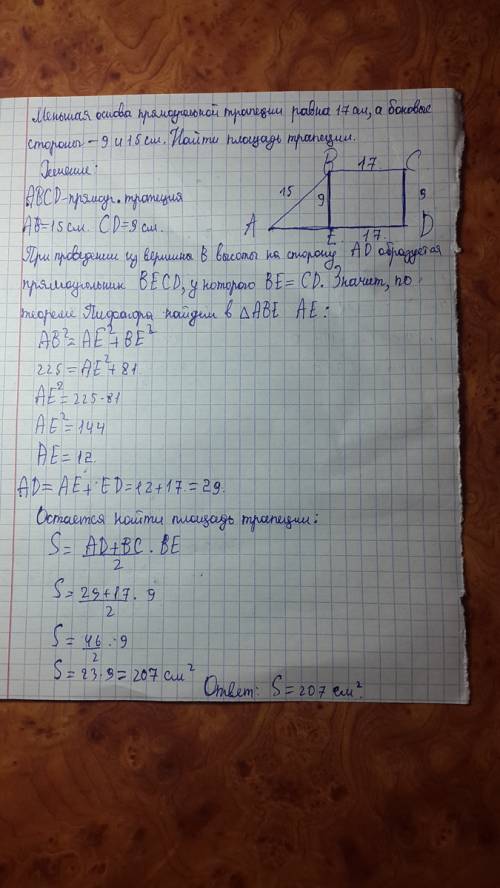 Меньшая основа прямоугольной трапеции равна 17 см, а боковые
стороны - 9 и 15 см. Найти площадь трапеции.
Решение:
B 17 C
15 9 9
A E 17 D
ABCD-прямоуг. трапеция
AB=15 см. CD=9 см.
При проведении из вершины B высоты на сторону AD образуется
прямоугольник BECD, у которого BE=CD. Значит, по
теореме Пифагора найдем в △ABE AE:
AB²=AE²+BE²
225=AE²+81
AE²=225-81
AE²=144
AE=12
AD=AE+ED=12+17=29.
Остается найти площадь трапеции:
S= AD+BC/2 · BE
S= 29+17/2 · 9
S= 46/2 · 9
S=23·9=207 см²
Ответ: S=207 см².